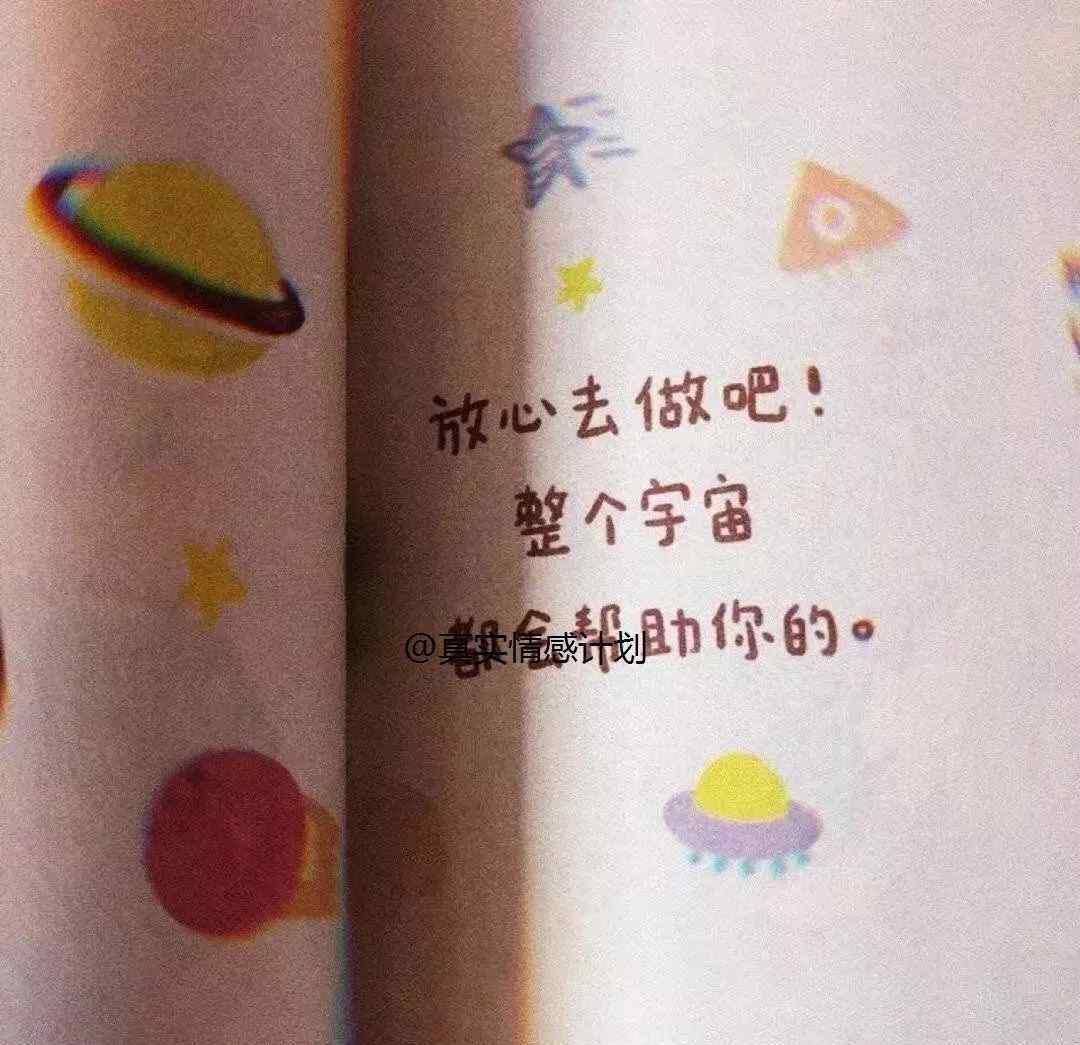 放心去做吧！
整个宇宙
都会帮助你的。
@真实情感计划